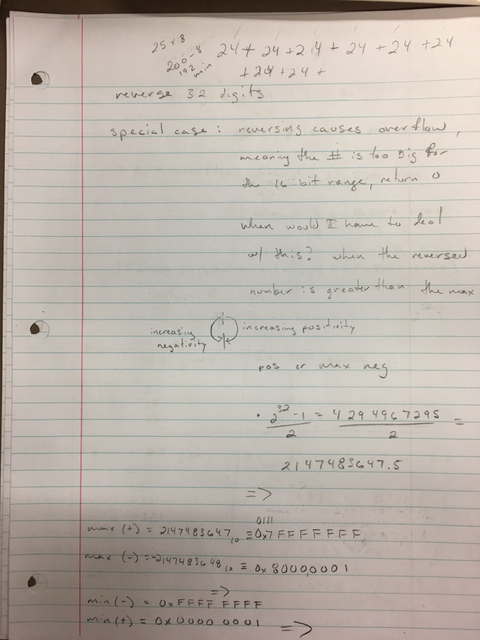 25 x 8
200 - 8
192 min
24 + 24 + 24 + 24 + 24 + 24
+ 24 + 24 +
reverse 32 digits
special case: reversing causes overflow,
meaning the # is too big for
the 16 bit range, return 0
when would I have to deal
w/ this? when the reversed
number is greater than the max
increasing negativity
increasing positivity
pos or max neg
• 2^32 - 1 / 2 = 4294967295 / 2 =
2147483647.5
=>
0111
max (+) = 2147483647₁₀ ≡ 0x7FFFFFFF
max (-) = -2147483648₁₀ ≡ 0x80000001
=>
min (-) = 0xFFFF FFFF
min (+) = 0x0000 0001 =>